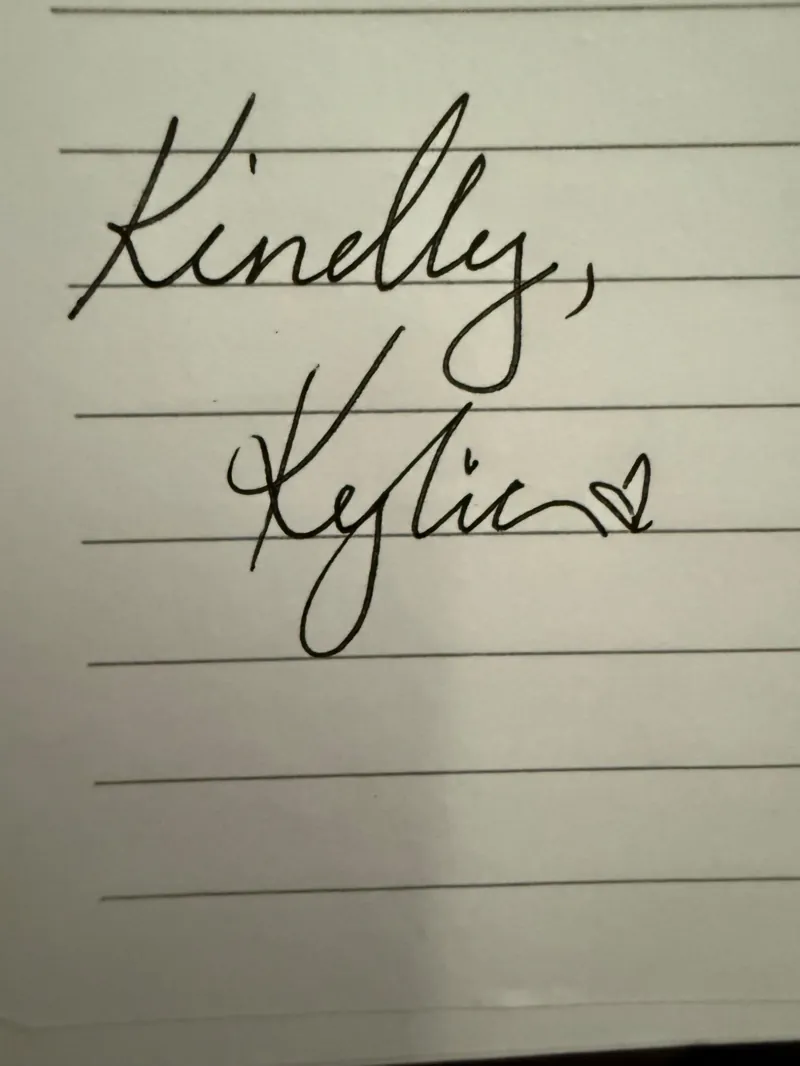 Kindly,
Kylie♡